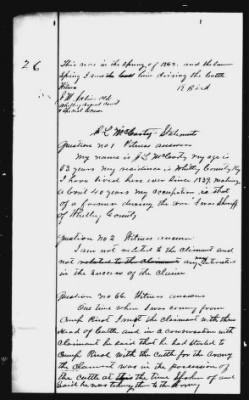 26
This was in the Spring of 1862. and the same
Spring I saw the last time driving the cattle
R Bird
A L McCarty Statement
Question No 1 Witness answers
My name is A L McCarty my age is
63 years my residence is Whitley County Ky
I have lived here ever since 1837, making
about 40 years my occupation is that
of a farmer during the war I was Sheriff
of Whitley County
Question No 2 Witness answers
I am not related to the claimant and
not related to the claimant any Interest
in the success of the claim
Question No 66. Witness answers
One time when I was coming from
Camp Rusk I met the claimant with them
Head of Cattle and in a conversation with
Claimant he said that he had started to
Camp Rusk with the cattle for the Army
the claimant was in the possession of
the cattle at this time spoken of and
said he was taking them to the Army